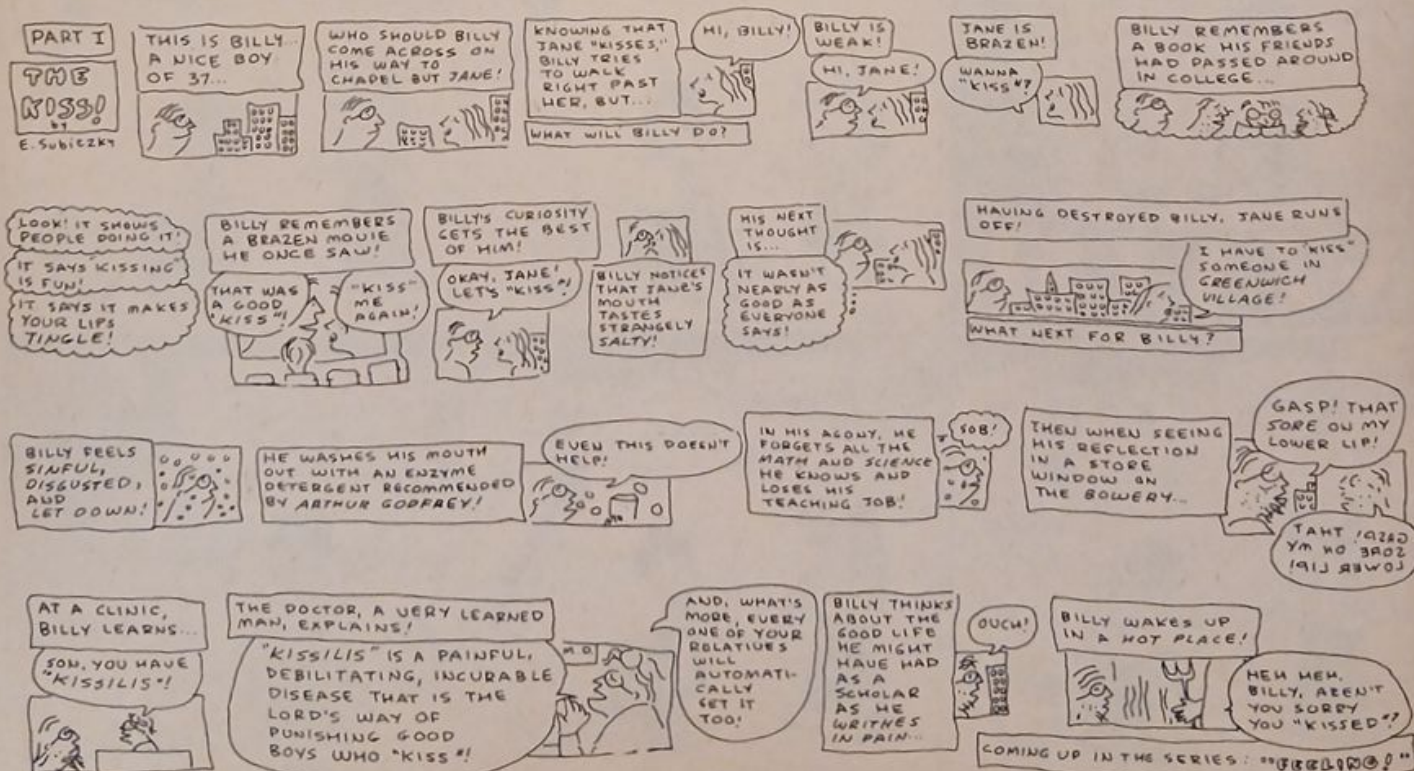 PART I
THE
KISS!
by
E. Subiczky
THIS IS BILLY...
A NICE BOY
OF 37...
WHO SHOULD BILLY
COME ACROSS ON
HIS WAY TO
CHAPEL BUT JANE!
KNOWING THAT
JANE "KISSES,"
BILLY TRIES
TO WALK
RIGHT PAST
HER, BUT...
HI, BILLY!
WHAT WILL BILLY DO?
BILLY IS
WEAK!
HI, JANE!
JANE IS
BRAZEN!
WANNA
"KISS"?
BILLY REMEMBERS
A BOOK HIS FRIENDS
HAD PASSED AROUND
IN COLLEGE...
LOOK! IT SHOWS
PEOPLE DOING IT!
IT SAYS "KISSING"
IS FUN!
IT SAYS IT MAKES
YOUR LIPS
TINGLE!
BILLY REMEMBERS
A BRAZEN MOVIE
HE ONCE SAW!
THAT WAS
A GOOD
"KISS"!
"KISS"
ME
AGAIN!
BILLY'S CURIOSITY
GETS THE BEST
OF HIM!
OKAY, JANE!
LET'S "KISS"!
BILLY NOTICES
THAT JANE'S
MOUTH
TASTES
STRANGELY
SALTY!
HIS NEXT
THOUGHT
IS...
IT WASN'T
NEARLY AS
GOOD AS
EVERYONE
SAYS!
HAVING DESTROYED BILLY, JANE RUNS
OFF!
I HAVE TO "KISS"
SOMEONE IN
GREENWICH
VILLAGE!
WHAT NEXT FOR BILLY?
BILLY FEELS
SINFUL,
DISGUSTED,
AND
LET DOWN!
HE WASHES HIS MOUTH
OUT WITH AN ENZYME
DETERGENT RECOMMENDED
BY ARTHUR GODFREY!
EVEN THIS DOESN'T
HELP!
IN HIS AGONY, HE
FORGETS ALL THE
MATH AND SCIENCE
HE KNOWS AND
LOSES HIS
TEACHING JOB!
SOB!
THEN WHEN SEEING
HIS REFLECTION
IN A STORE
WINDOW ON
THE BOWERY...
GASP! THAT
SORE ON MY
LOWER LIP!
GASP! THAT
SORE ON MY
LOWER LIP!
AT A CLINIC,
BILLY LEARNS...
SON, YOU HAVE
"KISSILIS"!
THE DOCTOR, A VERY LEARNED
MAN, EXPLAINS!
"KISSILIS" IS A PAINFUL,
DEBILITATING, INCURABLE
DISEASE THAT IS THE
LORD'S WAY OF
PUNISHING GOOD
BOYS WHO "KISS"!
AND, WHAT'S
MORE, EVERY
ONE OF YOUR
RELATIVES
WILL
AUTOMATI-
CALLY
GET IT
TOO!
BILLY THINKS
ABOUT THE
GOOD LIFE
HE MIGHT
HAVE HAD
AS A
SCHOLAR
AS HE
WRITHES
IN PAIN...
OUCH!
BILLY WAKES UP
IN A HOT PLACE!
HEH HEH,
BILLY, AREN'T
YOU SORRY
YOU "KISSED"?
COMING UP IN THE SERIES: "FEELING!"